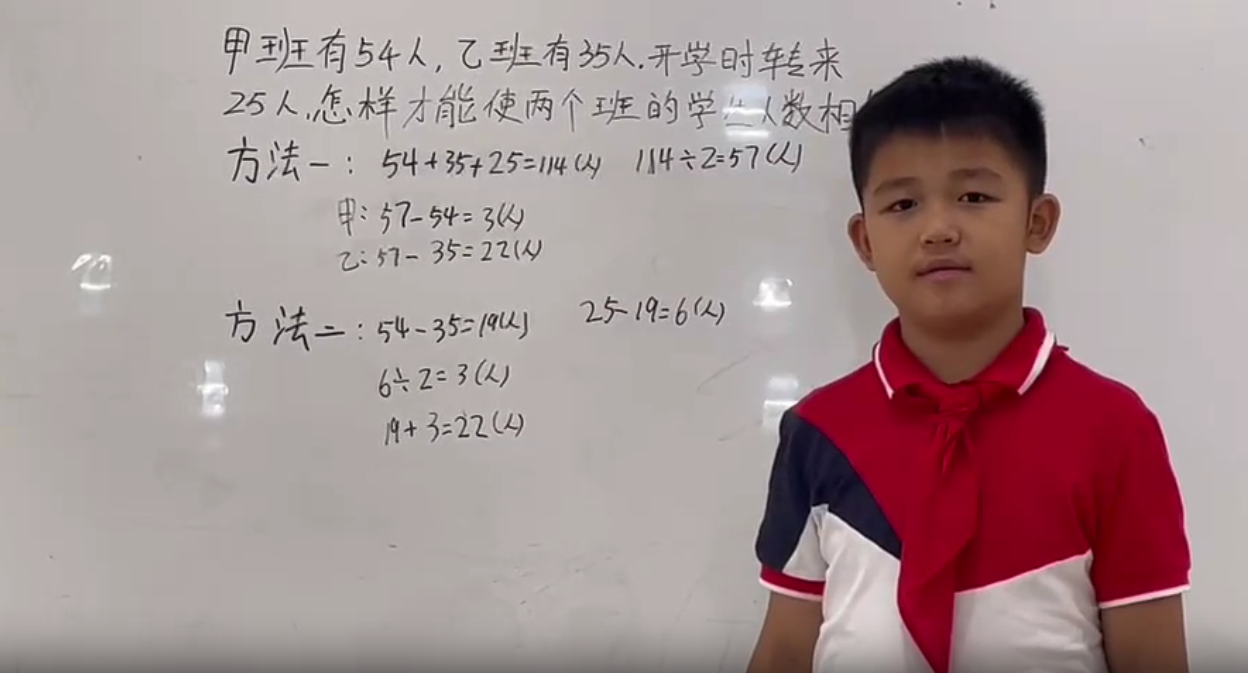 甲班有54人,乙班有35人.开学时转来
25人.怎样才能使两个班的学生人数相
方法一: 54+35+25=114(人) 114÷2=57(人)
甲: 57-54=3(人)
乙: 57-35=22(人)
方法二: 54-35=19(人) 25-19=6(人)
6÷2=3(人)
19+3=22(人)